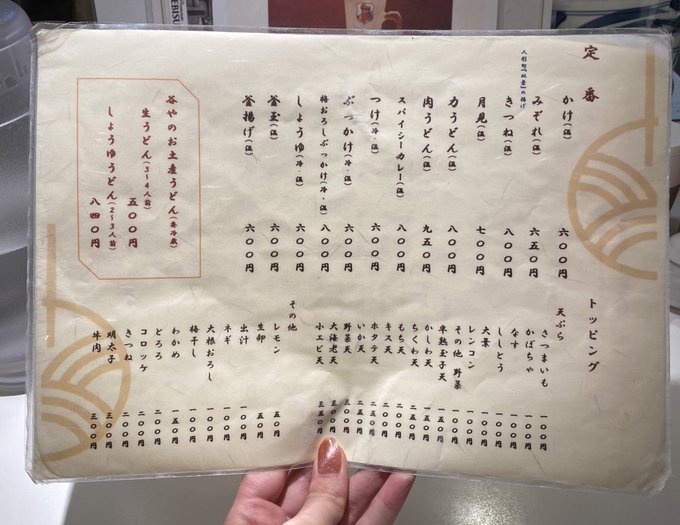 定番
かけ(温) 六〇〇円
みぞれ(温) 六五〇円
人形町『双葉』の揚げ
きつね(温) 八〇〇円
月見(温) 七〇〇円
力うどん(温) 八〇〇円
肉うどん(温) 九五〇円
スパイシーカレー(温) 八〇〇円
つけ(冷・温) 六〇〇円
ぶっかけ(冷・温) 六〇〇円
梅おろしぶっかけ(冷・温) 八〇〇円
しょうゆ(冷・温) 六〇〇円
釜玉(温) 六〇〇円
釜揚げ(温) 六〇〇円
谷やのお土産うどん(要冷蔵)
生うどん(3〜4人前)
五〇〇円
しょうゆうどん(2〜3人前)
八四〇円
トッピング
天ぷら
さつまいも 一〇〇円
かぼちゃ 一〇〇円
なす 一〇〇円
ししとう 一〇〇円
大葉 一〇〇円
レンコン 一〇〇円
その他 野菜 一〇〇円
半熟玉子天 一五〇円
かしわ天
ちくわ天
もち天
キス天
ホタテ天 二五〇円
いか天
野菜天
大海老天
小エビ天 三五〇円
その他
レモン 五〇円
生卵 五〇円
出汁 一〇〇円
ネギ 一〇〇円
大根おろし 一〇〇円
梅干し 一〇〇円
わかめ 一五〇円
とろろ 二〇〇円
コロッケ 二〇〇円
きつね 二〇〇円
明太子 三〇〇円
牛肉 三〇〇円